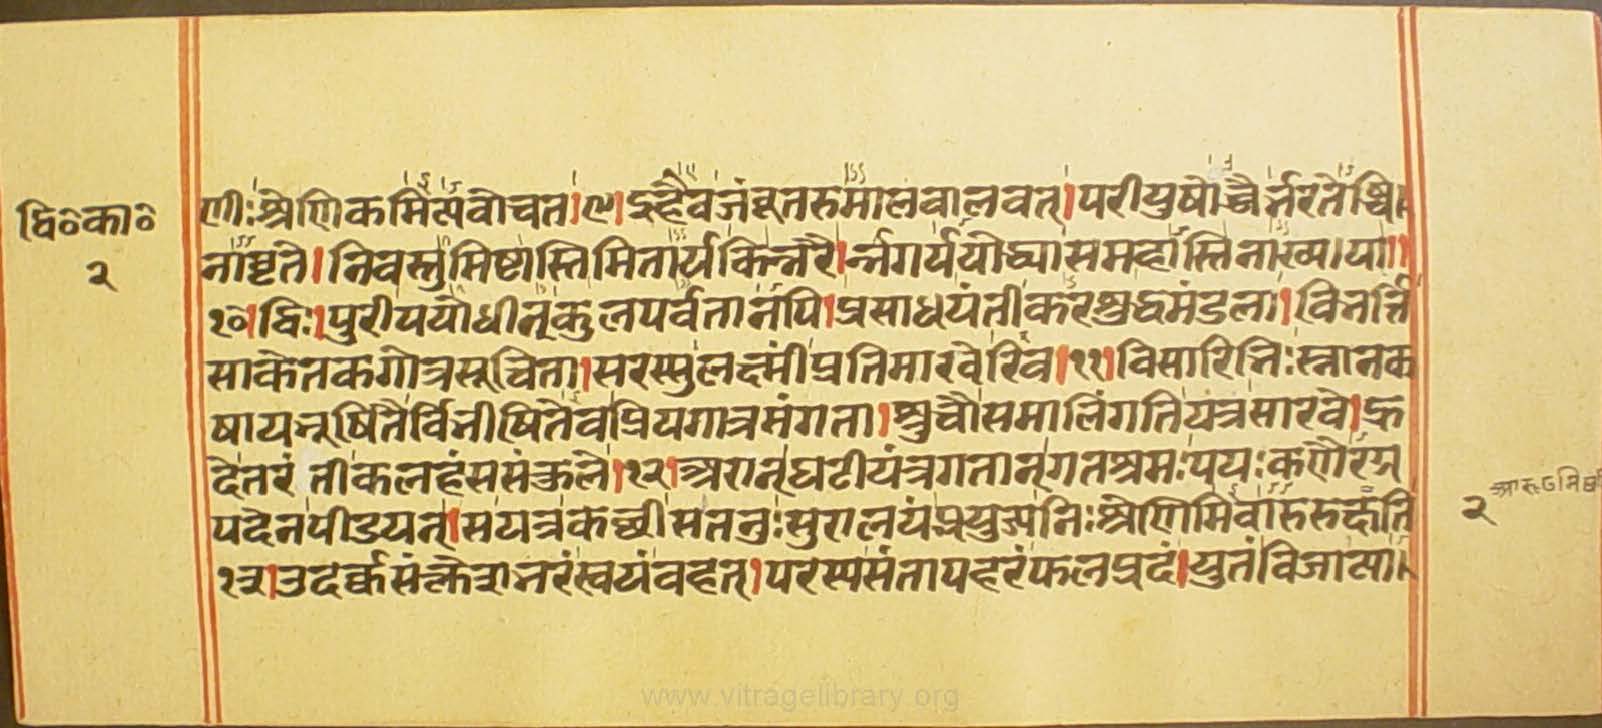 द्वि॰का॰
२
णीः श्रेणिकमित्यवोचत।९।इहैव जंबूतरुमालवालवत्।परीयुषोच्चैर्भरतेब्धि
नावृते।निवस्तुमिष्टास्तिमितार्यकिन्नरै।र्न्नगर्ययोध्यासमहास्तिनाख्यया॥
१०।द्विः।पुरीययोधीन्कुलपर्वतानपि।प्रसाधयंतीकरशुद्धमंडला।विनर्त्ति
साकेतकगोत्रसूचिता।सरस्सुलक्ष्मीप्रतिमारवेरिव।११।विसारिनिःस्नानक
षायभूषितैर्विभीषितेवप्रियगात्रमंगता।शुचौसमालिंगतियत्रसारवे।ह्र
देतरंतीकलहंससंकुले।१२।अरान्घटीयंत्रगतान्गतश्रमःपयःकणैरग्र
पदेनपीडयन्।सयत्रकच्छीसतनुःसुरालयंप्रयुज्यनिःश्रेणिमिवारुरुक्षति
१३।उदर्कसंक्लेशभरंस्वयंवहत्।परस्यसंतापहरंफलप्रदं।युतंविजात्या
२
www.vitragelibrary.org